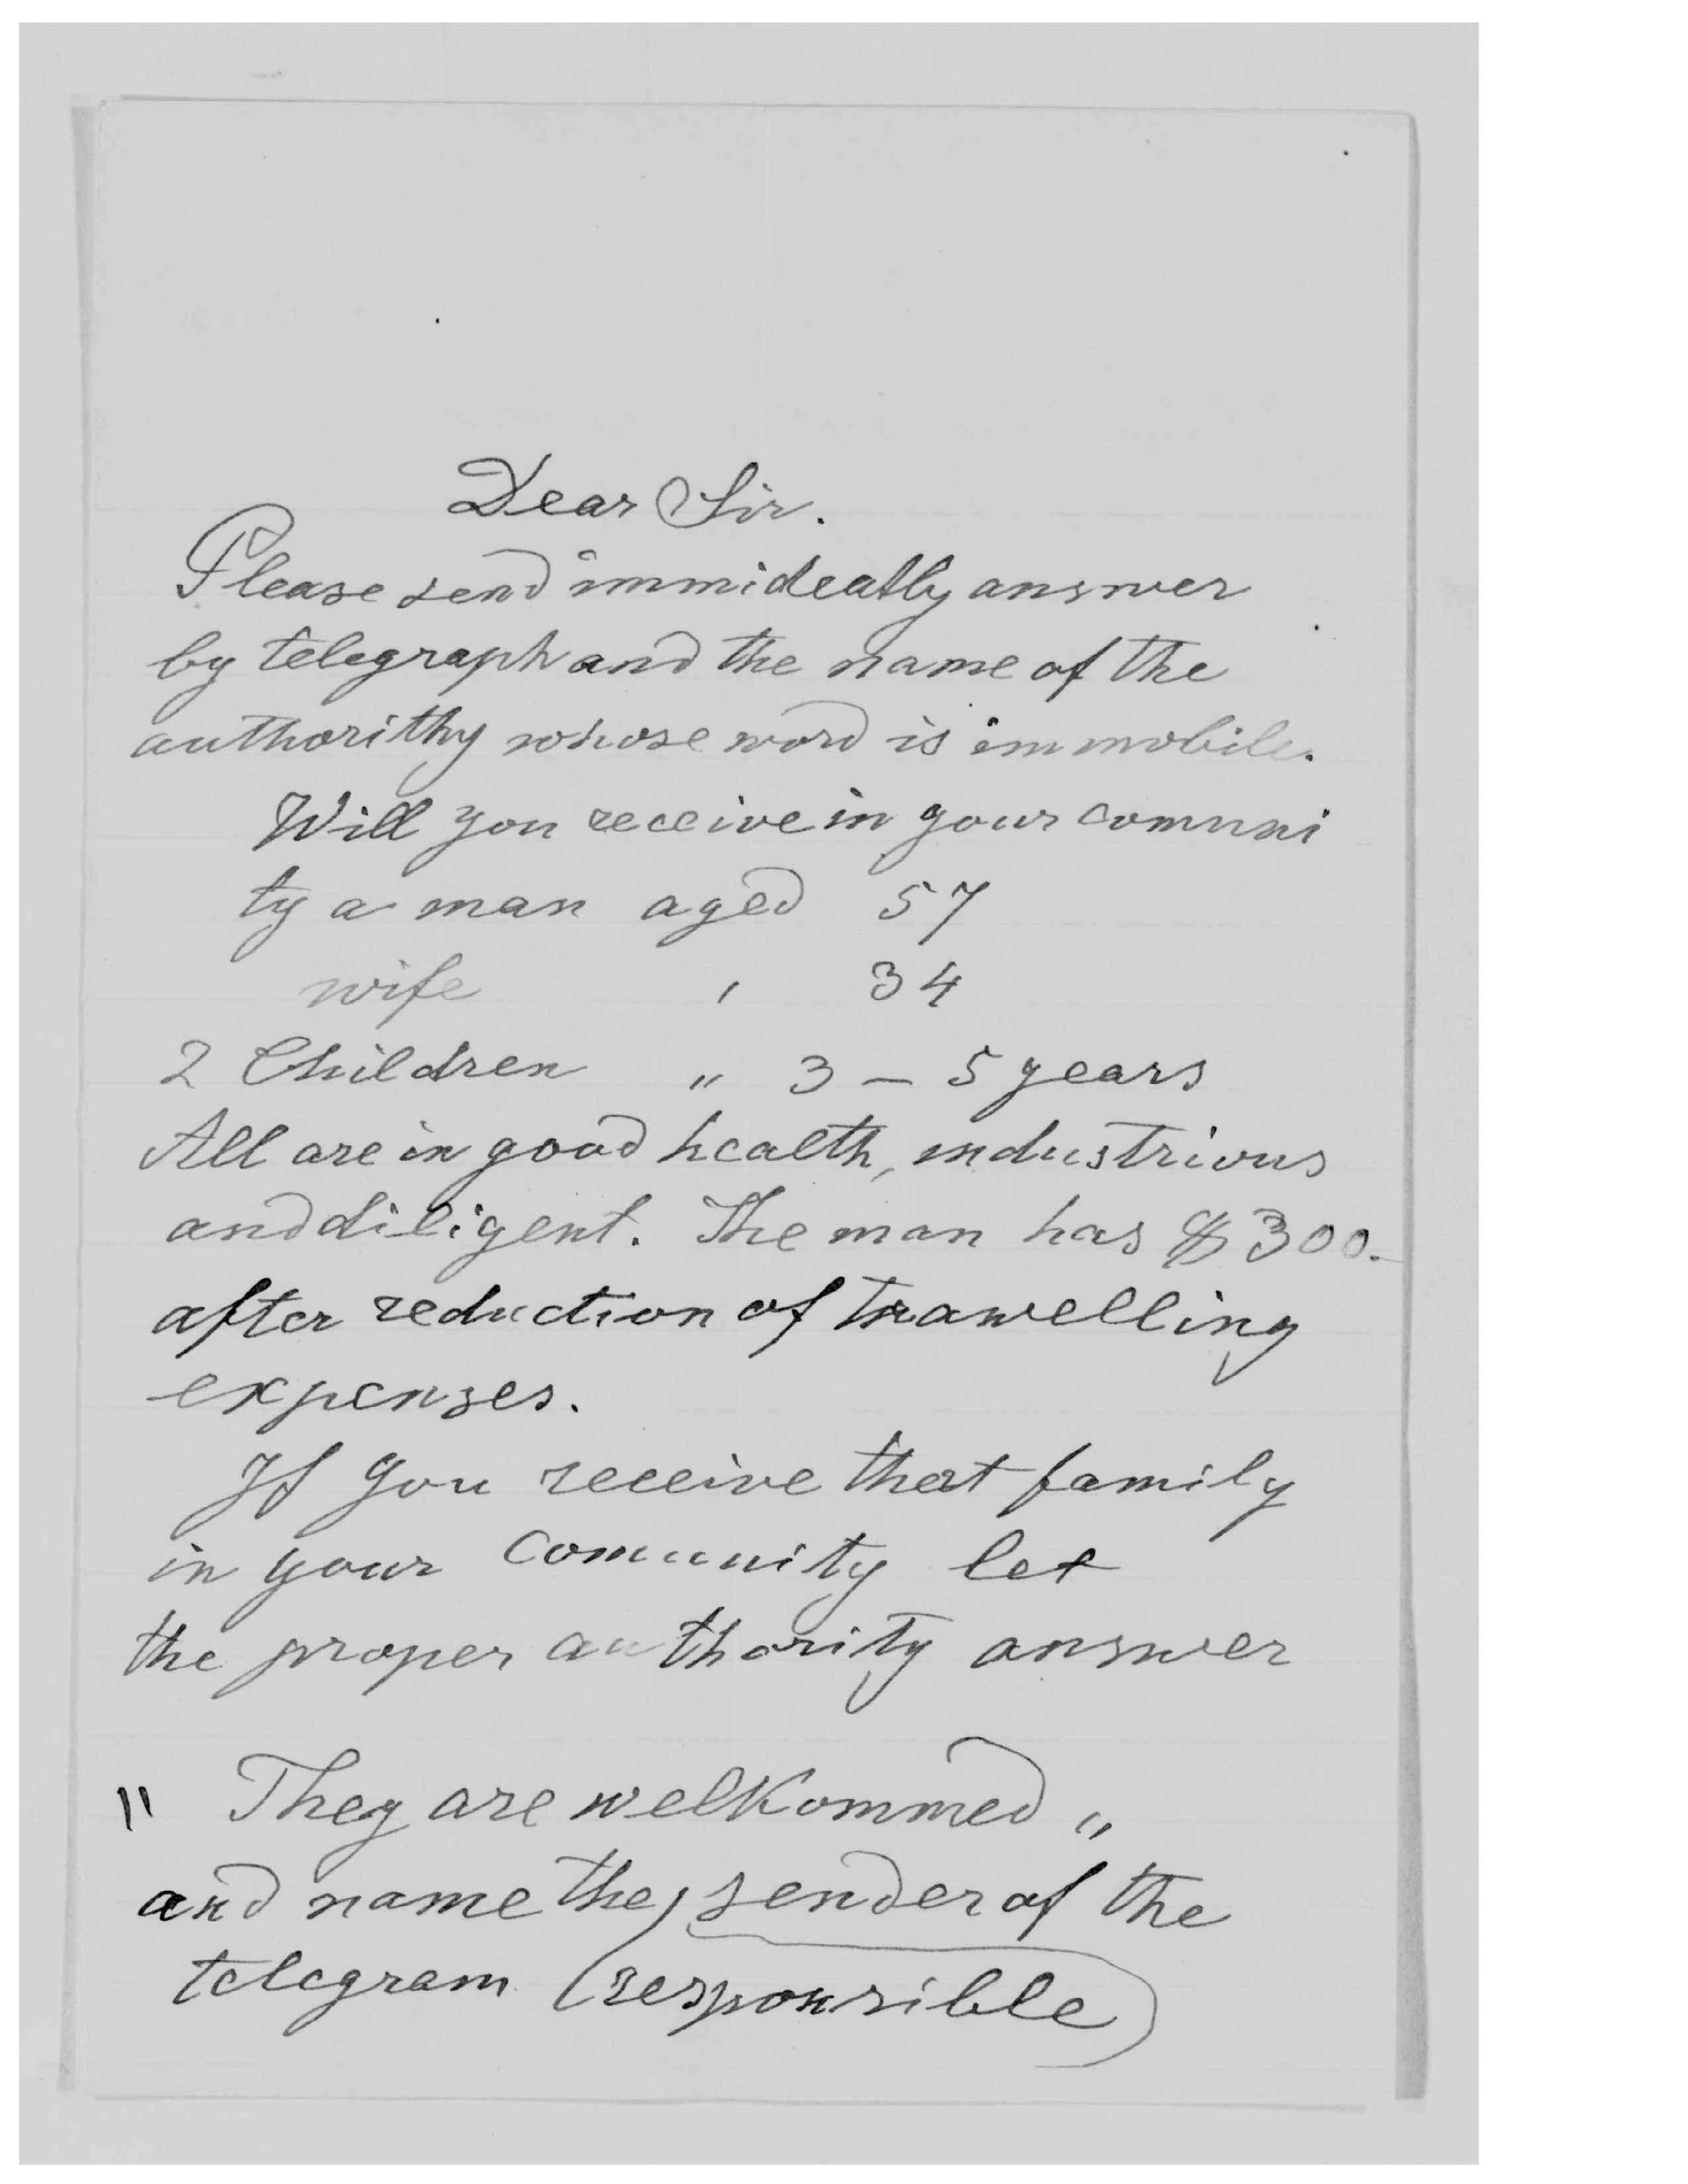 Dear Sir.
Please send immideatly answer
by telegraph and the name of the
authorithy whose word is immobile.
Will you receive in your comuni
ty a man aged 57
wife ' 34
2 Children " 3 – 5 years
All are in good health, industrious
and diligent. The man has $300.–
after reduction of trawelling
expenses.
If you receive that family
in your Comunity let
the proper authority answer
" They are welKommed "
and name the sender of the
telegram (responsible)